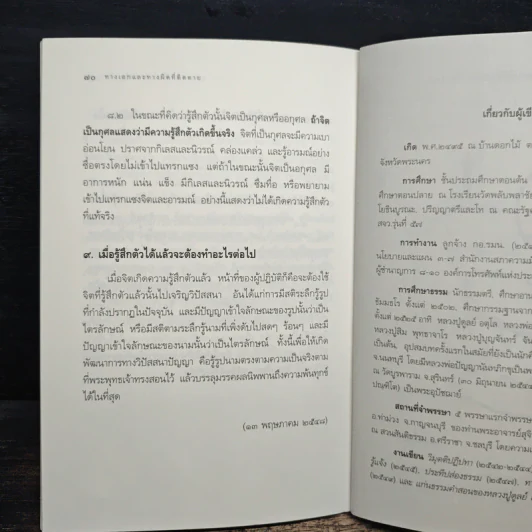 ๗๐ ทางเอกและทางผิดที่ติดตาย
๘.๒ ในขณะที่คิดว่ารู้สึกตัวนั้นจิตเป็นกุศลหรืออกุศล ถ้าจิต
เป็นกุศลแสดงว่ามีความรู้สึกตัวเกิดขึ้นจริง จิตที่เป็นกุศลจะมีความเบา
อ่อนโยน ปราศจากกิเลสและนิวรณ์ คล่องแคล่ว และรู้อารมณ์อย่าง
ซื่อตรงโดยไม่เข้าไปแทรกแซง แต่ถ้าในขณะนั้นจิตเป็นอกุศล มี
อาการหนัก แน่น แข็ง มีกิเลสและนิวรณ์ ซึมทื่อ หรือพยายาม
เข้าไปแทรกแซงจิตและอารมณ์ อย่างนี้แสดงว่าไม่ได้เกิดความรู้สึกตัว
ที่แท้จริง
๙. เมื่อรู้สึกตัวได้แล้วจะต้องทำอะไรต่อไป
เมื่อจิตเกิดความรู้สึกตัวแล้ว หน้าที่ของผู้ปฏิบัติก็คือจะต้องใช้
จิตที่รู้สึกตัวแล้วนั้นไปเจริญวิปัสสนา อันได้แก่การมีสติระลึกรู้รูป
ที่กำลังปรากฏในปัจจุบัน และมีปัญญาเข้าใจลักษณะของรูปนั้นว่าเป็น
ไตรลักษณ์ หรือมีสติตามระลึกรู้นามที่เพิ่งดับไปสดๆ ร้อนๆ และมี
ปัญญาเข้าใจลักษณะของนามนั้นว่าเป็นไตรลักษณ์ ทั้งนี้เพื่อให้เกิด
พัฒนาการทางวิปัสสนาปัญญา คือรู้รูปนามตรงตามความเป็นจริงตาม
ที่พระพุทธเจ้าทรงสอนไว้ แล้วบรรลุมรรคผลนิพพานถึงความพ้นทุกข์
ได้ในที่สุด
(๑๓ พฤษภาคม ๒๕๔๘)
เกี่ยวกับผู้เขีย
เกิด พ.ศ.๒๔๙๕ ณ บ้านดอกไม้
จังหวัดพระนคร
การศึกษา ชั้นประถมศึกษาตอนต้น
ศึกษาตอนปลาย ณ โรงเรียนวัดพลับพลาชัย
โยธินบูรณะ, ปริญญาตรีและโท ณ คณะรัฐ
สจว.รุ่นที่ ๕๗
การทำงาน ลูกจ้าง กอ.รมน.
นโยบายและแผน ๓-๗ สำนักงานสภาความมั่
ผู้ชำนาญการ ๘-๑๐ องค์การโทรศัพท์แห่งประ
การศึกษาธรรม นักธรรมตรี, ศึกษาอาน
ธัมมธโร ตั้งแต่ ๒๕๐๒, ศึกษากรรมฐานจาก
ตั้งแต่ ๒๕๒๕ อาทิ หลวงปู่ดูลย์ อตุโล หลวงพ่อ
หลวงปู่สิม พุทธาจาโร หลวงปู่บุญจันทร์ จัน
เป็นต้น, อุปสมบทครั้งแรกในสมัยที่ยังเป็นนัก
จ.นนทบุรี โดยมีหลวงพ่อปัญญานันทภิกขุเป็นพร
ณ วัดบูรพาราม จ.สุรินทร์ (๓๐ มิถุนายน ๒๕๔๔
ปณฺฑิโต) เป็นพระอุปัชฌาย์
สถานที่จำพรรษา ๕ พรรษาแรกจำพรรษ
อ.ท่าม่วง จ.กาญจนบุรี ของท่านพระอาจารย์สุจิ
ณ สวนสันติธรรม อ.ศรีราชา จ.ชลบุรี โดยความเ
งานเขียน วิมุตติปฏิปทา (๒๕๔๒-๒๕๔๔)
รู้แจ้ง (๒๕๔๕), ประทีปส่องธรรม (๒๕๔๗), ทา
(๒๕๔๙) และ แก่นธรรมคำสอนของหลวงปู่ดูลย์ อ